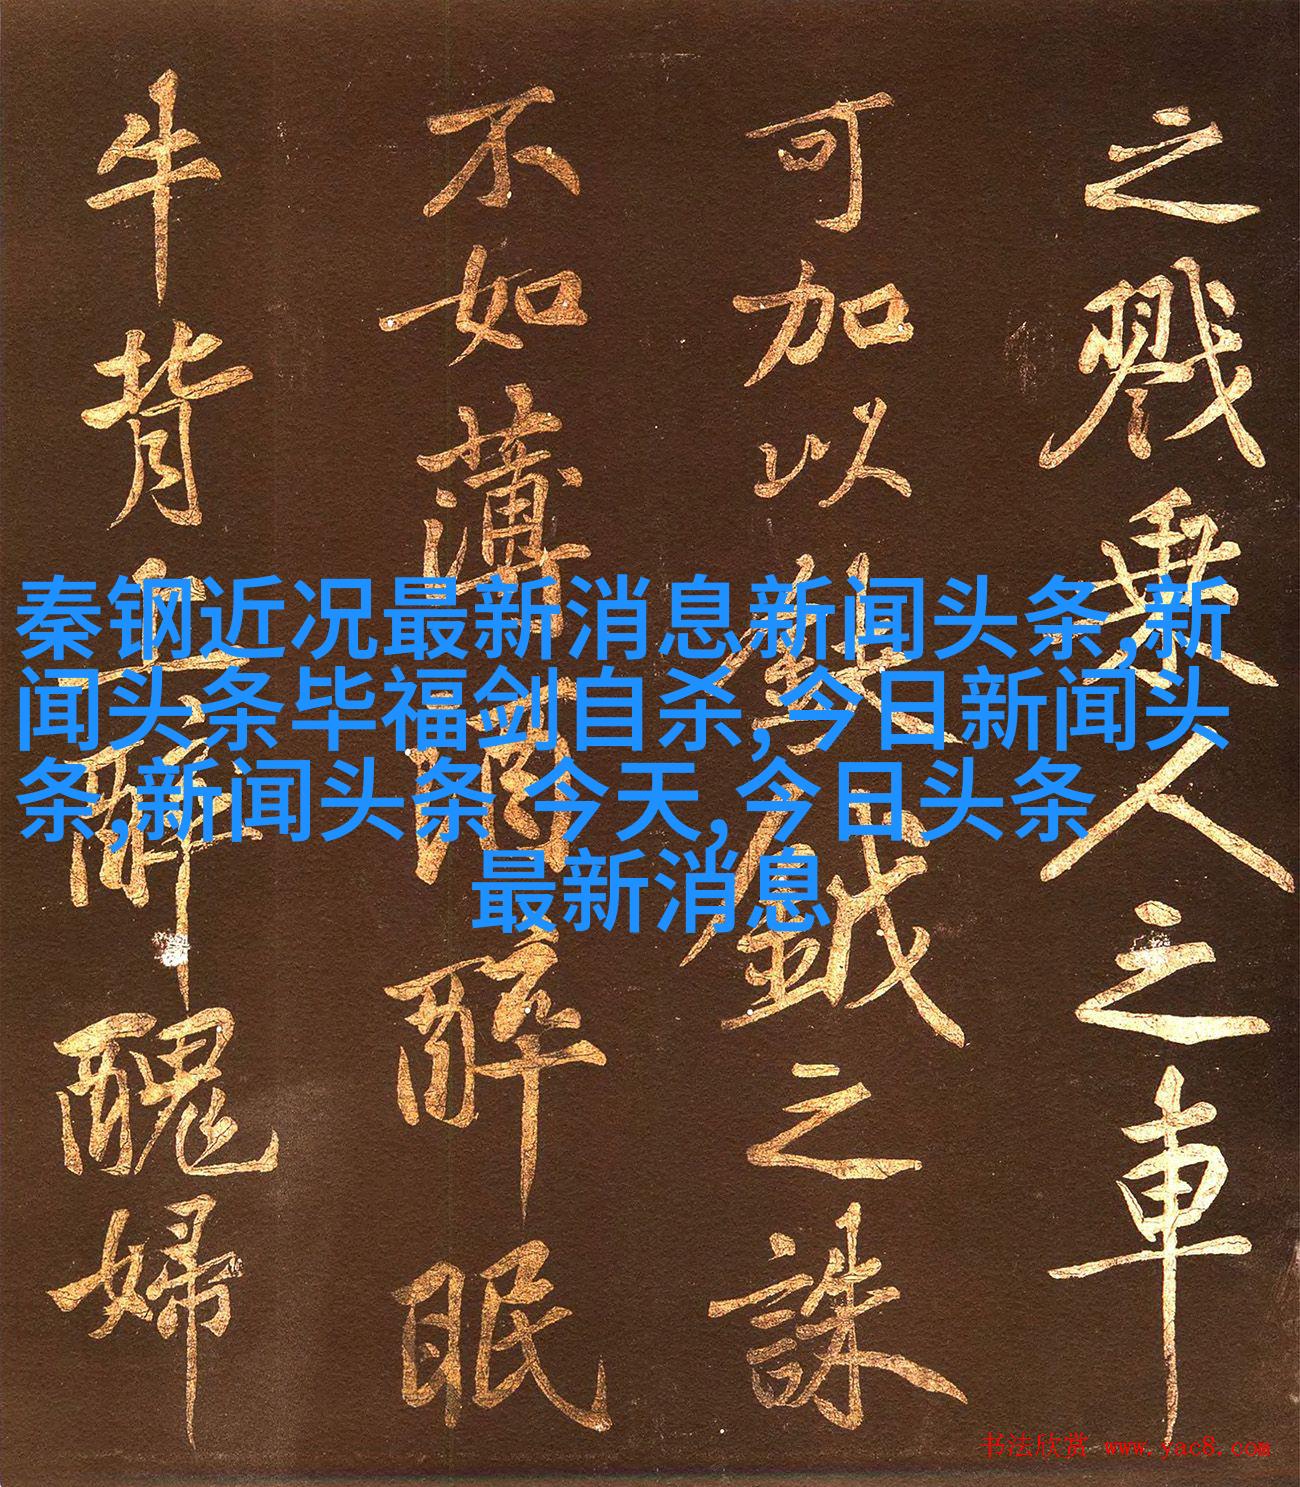 之戮乘人之車
可加以鈇鉞之誅
不如薄酒醉眠
牛背上醉醜婦
秦钢近况最新消息新闻头条,新
闻头条毕福剑自杀,今日新闻头
条,新闻头条 今天,今日头条
最新消息
书法欣赏 www.yac8.com